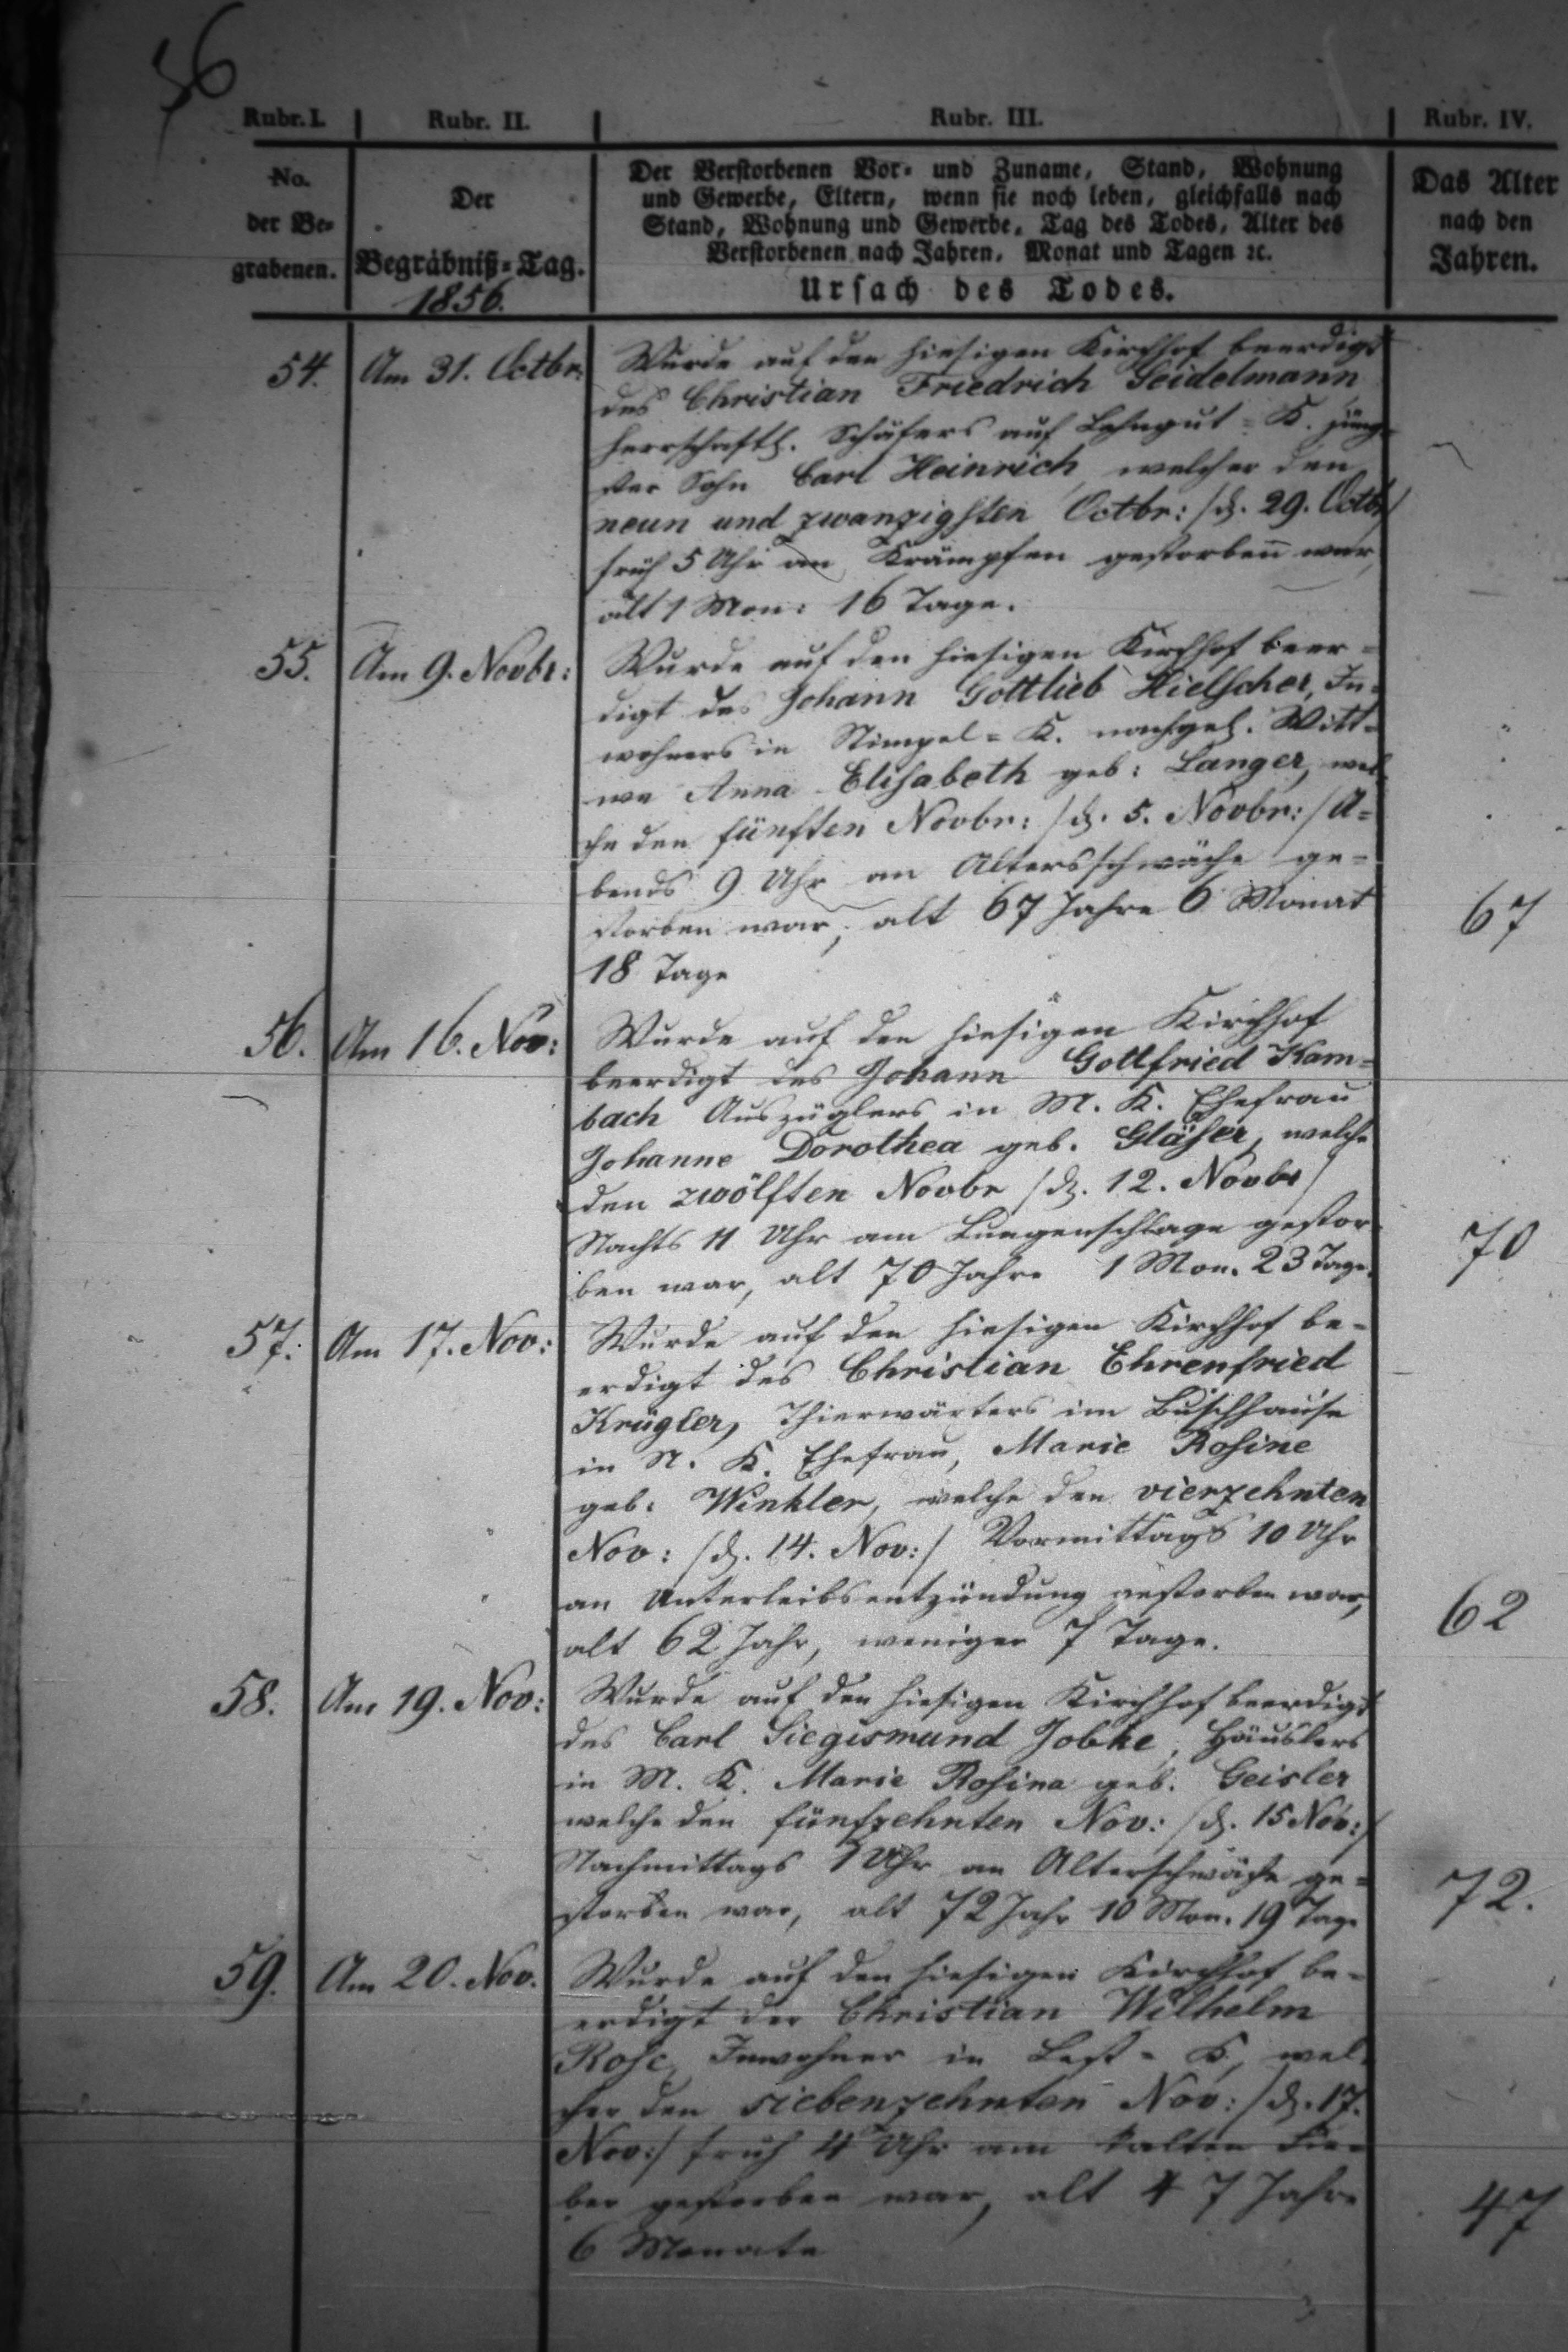 36
Rubr. I. Rubr. II. Rubr. III. Rubr. IV.
No.
der Be-
grabenen.
Der
Begräbniß-Tag.
1856.
Der Verstorbenen Vor- und Zuname, Stand, Wohnung
und Gewerbe, Eltern, wenn sie noch leben, gleichfalls nach
Stand, Wohnung und Gewerbe, Tag des Todes, Alter des
Verstorbenen nach Jahren, Monat und Tagen ꝛc.
Ursach des Todes.
Das Alter
nach den
Jahren.
54. Am 31. Octbr: Wurde auf den hiesigen Kirchhof beerdigt
des Christian Friedrich Seidelmann
herrschaftl. Schäfers auf Lehngut-K. jüng-
ster Sohn Carl Heinrich, welcher den
neun und zwanzigsten Octbr: /d. 29. Octb/
früh 5 Uhr an Krämpfen gestorben war,
alt 1 Mon: 16 Tage.
55. Am 9. Novbr: Wurde auf den hiesigen Kirchhof beer-
digt des Johann Gottlieb Hielscher, In-
wohners in Stimpel-K. nachgel. Witt-
we Anna Elisabeth geb: Langer, wel-
che den fünften Novbr: /d. 5. Novbr:/ A-
bends 9 Uhr an Altersschwäche ge-
storben war, alt 67 Jahre 6 Monat 67
18 Tage
56. Am 16. Nov: Wurde auf den hiesigen Kirchhof
beerdigt des Johann Gottfried Kam-
bach Auszüglers in M. K. Ehefrau
Johanne Dorothea geb. Gläser, welche
den zwölften Novbr /d. 12. Novbr/
Nachts 11 Uhr am Lungenschlage gestor-
ben war, alt 70 Jahre 1 Mon. 23 Tage. 70
57. Am 17. Nov: Wurde auf den hiesigen Kirchhof be-
erdigt des Christian Ehrenfried
Krügler, Thierwärters im Buschhause
in N. K. Ehefrau, Marie Rosine
geb: Winkler, welche den vierzehnten
Nov: /d. 14. Nov:/ Vormittags 10 Uhr
an Unterleibsentzündung gestorben war,
alt 62 Jahr, weniger 7 Tage. 62
58. Am 19. Nov: Wurde auf den hiesigen Kirchhof beerdigt
des Carl Siegismund Jobke, Häuslers
in M. K. Marie Rosina geb. Geisler
welche den fünfzehnten Nov: /d. 15 Nov:/
Nachmittags 1 Uhr an Altersschwäche ge-
storben war, alt 72 Jahr 10 Mon. 19 Tage 72.
59. Am 20. Nov. Wurde auf den hiesigen Kirchhof be-
erdigt der Christian Wilhelm
Rose, Inwohner in K, wel-
cher den siebenzehnten Nov: /d. 17.
Nov:/ früh 4 Uhr am kalten Fie-
ber gestorben war, alt 47 Jahre 47
6 Monate